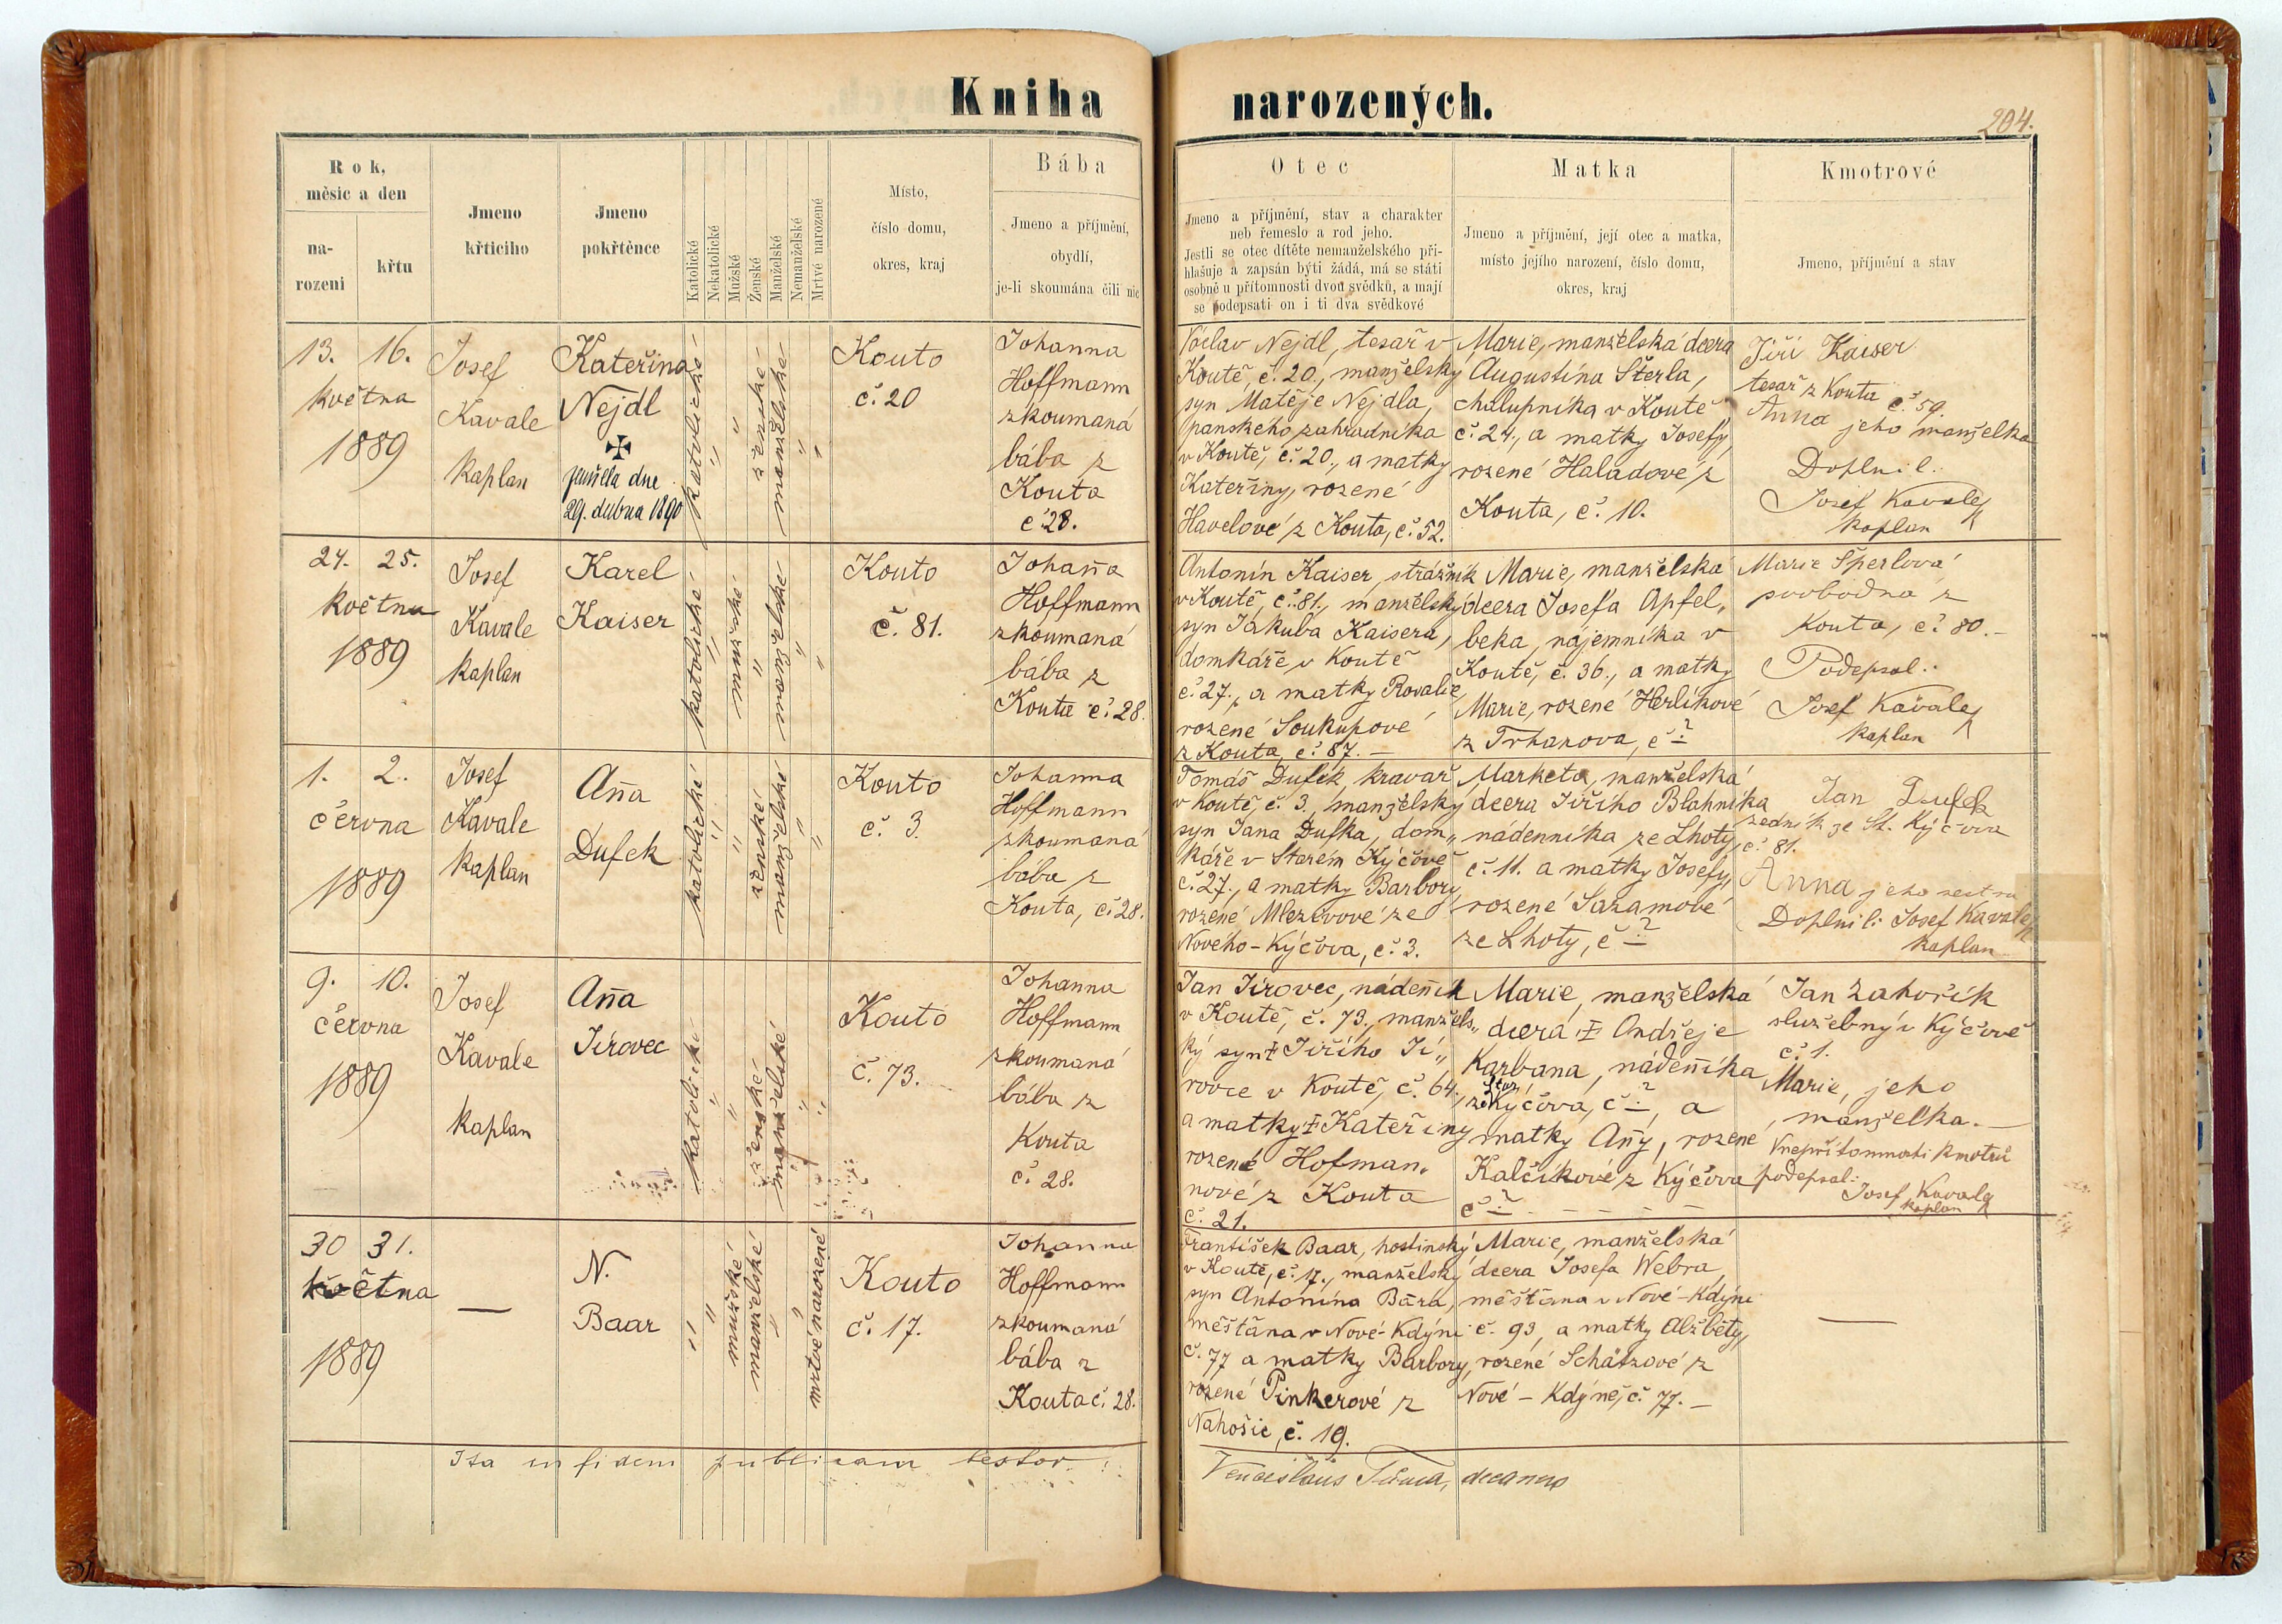 Kniha narozených.
204.
Rok,
měsíc a den
na-
rozeni
křtu
Jmeno
křticího
Jmeno
pokřtěnce
Katolické
Nekatolické
Mužské
Ženské
Manželské
Nemanželské
Mrtvé narozené
Místo,
číslo domu,
okres, kraj
Bába
Jmeno a příjmění,
obydlí,
je-li skoumána čili nic
Otec
Jmeno a příjmění, stav a charakter
neb řemeslo a rod jeho.
Jestli se otec dítěte nemanželského při-
hlašuje a zapsán býti žádá, má se státi
osobně u přítomnosti dvou svědků, a mají
se podepsati on i ti dva svědkové
Matka
Jmeno a příjmění, její otec a matka,
místo jejího narození, číslo domu,
okres, kraj
Kmotrové
Jmeno, příjmění a stav
13. 16.
května
1889
Josef
Kavale
kaplan
Kateřina
Nejdl
✠
zemřela dne
29. dubna 1890
katolické
"
"
ženské
manželské
"
"
Kouto
č. 20
Johanna
Hoffmann
zkoumaná
bába z
Kouta
č. 28.
Václav Nejdl, tesař v
Koutě, č. 20., manželský
syn Matěje Nejdla,
panského zahradníka
v Koutě, č. 20., a matky
Kateřiny, rozené
Havelové z Kouta, č. 52.
Marie, manželská dcera
Augustina Šterla,
chalupníka v Koutě
č. 24., a matky Josefy,
rozené Haladové z
Kouta, č. 10.
Jiří Kaiser
tesař z Kouta č. 59.
Anna jeho manželka
Doplnil:
Josef Kavale
kaplan
24. 25.
května
1889
Josef
Kavale
kaplan
Karel
Kaiser
katolické
"
mužské
"
manželské
"
"
Kouto
č. 81.
Johan̄a
Hoffmann
zkoumaná
bába z
Kouta č. 28.
Antonín Kaiser, strážník
v Koutě, č. 81., manželský
syn Jakuba Kaisera,
domkáře v Koutě
č. 27., a matky Rosalie,
rozené Soukupové
z Kouta, č. 87. –
Marie, manželská
dcera Josefa Apfel„
beka, nájemníka v
Koutě, č. 36., a matky
Marie, rozené Herlíkové
z Trhanova, č –?
Marie Šperlová
svobodna z
Kouta, č. 80. –
Podepsal:
Josef Kavale
kaplan
1. 2.
června
1889
Josef
Kavale
kaplan
An̄a
Dufek
katolické
"
"
ženské
manželské
"
"
Kouto
č. 3.
Johanna
Hoffmann
zkoumaná
bába z
Kouta, č. 28.
Tomáš Dufek, kravař
v Koutě, č. 3. manželský
syn Jana Dufka, dom„
káře v Starém Kýčově
č. 27., a matky Barbory,
rozené Mlezivové ze
Nového-Kýčova, č. 3.
Marketa, manželská
dcera Jiřího Blahníka
nádenníka ze Lhoty,
č. 11. a matky Josefy,
rozené Sazamové
ze Lhoty, č –?
Jan Dufek
zedník ze St. Kýčova
č. 81.
Anna jeho sestra
Doplnili: Josef Kavale
kaplan
9. 10.
června
1889
Josef
Kavale
kaplan
An̄a
Jírovec
katolické
"
"
ženské
manželské
"
"
Kouto
č. 73.
Johanna
Hoffmann
zkoumaná
bába z
Kouta
č. 28.
Jan Jírovec, náden̄ík
v Koutě, č. 73., manžels„
ký syn ‡ Jiřího Jí„
rovce v Koutě, č. 64.,
a matky ‡ Kateřiny
rozené Hofman„
nové z Kouta
č. 21.
Marie, manželská
dcera ‡ Andřeje
Karbana, náden̄íka
ze Star. Kýčova, č –?, a
matky An̄y, rozené
Kalčíkové z Kýčova
č –? – – – –
Jan Zahořík
služebný v Kýčově
č. 1.
Marie, jeho
manželka. –
V nepřítomnosti kmotrů
podepsal:
Josef Kavale
kaplan
30 31.
května
1889
—
N.
Baar
"
"
mužské
manželské
"
"
mrtvé narozené
Kouto
č. 17.
Johanna
Hoffmann
zkoumaná
bába z
Kouta č. 28.
František Baar, hostinský
v Koutě, č. 17., manželský
syn Antonína Bára,
měšťana v Nové-Kdýni
č. 77 a matky Barbory,
rozené Pinkerové z
Nahošic, č. 19.
Marie, manželská
dcera Josefa Webra,
měšťana v Nové-Kdýni
č. 93, a matky Alžběty,
rozené Schätzové z
Nové – Kdýně, č. 77. –
—
Ita in fidem publicam testor:
Venceslaus decanus